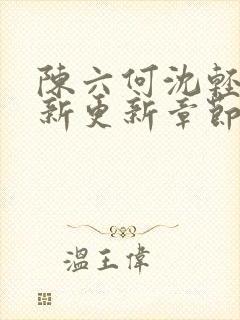 陳六何沈輕
新更新章節
溫王偉